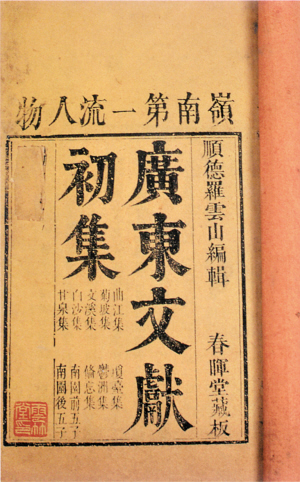 嶺南第一流人物
順德羅雲山編輯
春暉堂藏板
廣東文獻
初集
曲江集
菊坡集
文溪集
白沙集
甘泉集
瓊臺集
鬱洲集
備忘集
南園前五子
南園後五子